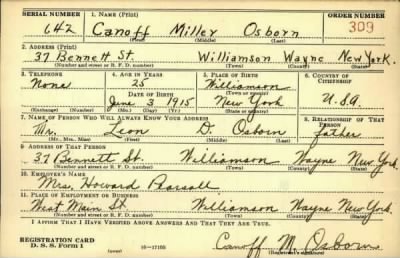 SERIAL NUMBER 1. NAME (Print) ORDER NUMBER
642 Canoff Miller Osborn 309
(First) (Middle) (Last)
2. ADDRESS (Print)
37 Bennett St. Williamson Wayne New York.
(Number and street or R. F. D. number) (Town) (County) (State)
3. TELEPHONE 4. AGE IN YEARS 5. PLACE OF BIRTH 6. COUNTRY OF CITIZENSHIP
None 25 Williamson
DATE OF BIRTH (Town or county)
June 3 1915 New York U.S.A.
(Exchange) (Number) (Mo.) (Day) (Yr.) (State or country)
7. NAME OF PERSON WHO WILL ALWAYS KNOW YOUR ADDRESS 8. RELATIONSHIP OF THAT PERSON
Mr. Leon D. Osborn father
(Mr., Mrs., Miss) (First) (Middle) (Last)
9. ADDRESS OF THAT PERSON
37 Bennett St. Williamson Wayne New York.
(Number and street or R. F. D. number) (Town) (County) (State)
10. EMPLOYER'S NAME
Mrs. Howard Pearsall
11. PLACE OF EMPLOYMENT OR BUSINESS
West Main St Williamson Wayne New York.
(Number and street or R. F. D. number) (Town) (County) (State)
I AFFIRM THAT I HAVE VERIFIED ABOVE ANSWERS AND THAT THEY ARE TRUE.
REGISTRATION CARD
D. S. S. Form 1 (over) 16-17105 Canoff M. Osborn
(Registrant's signature)